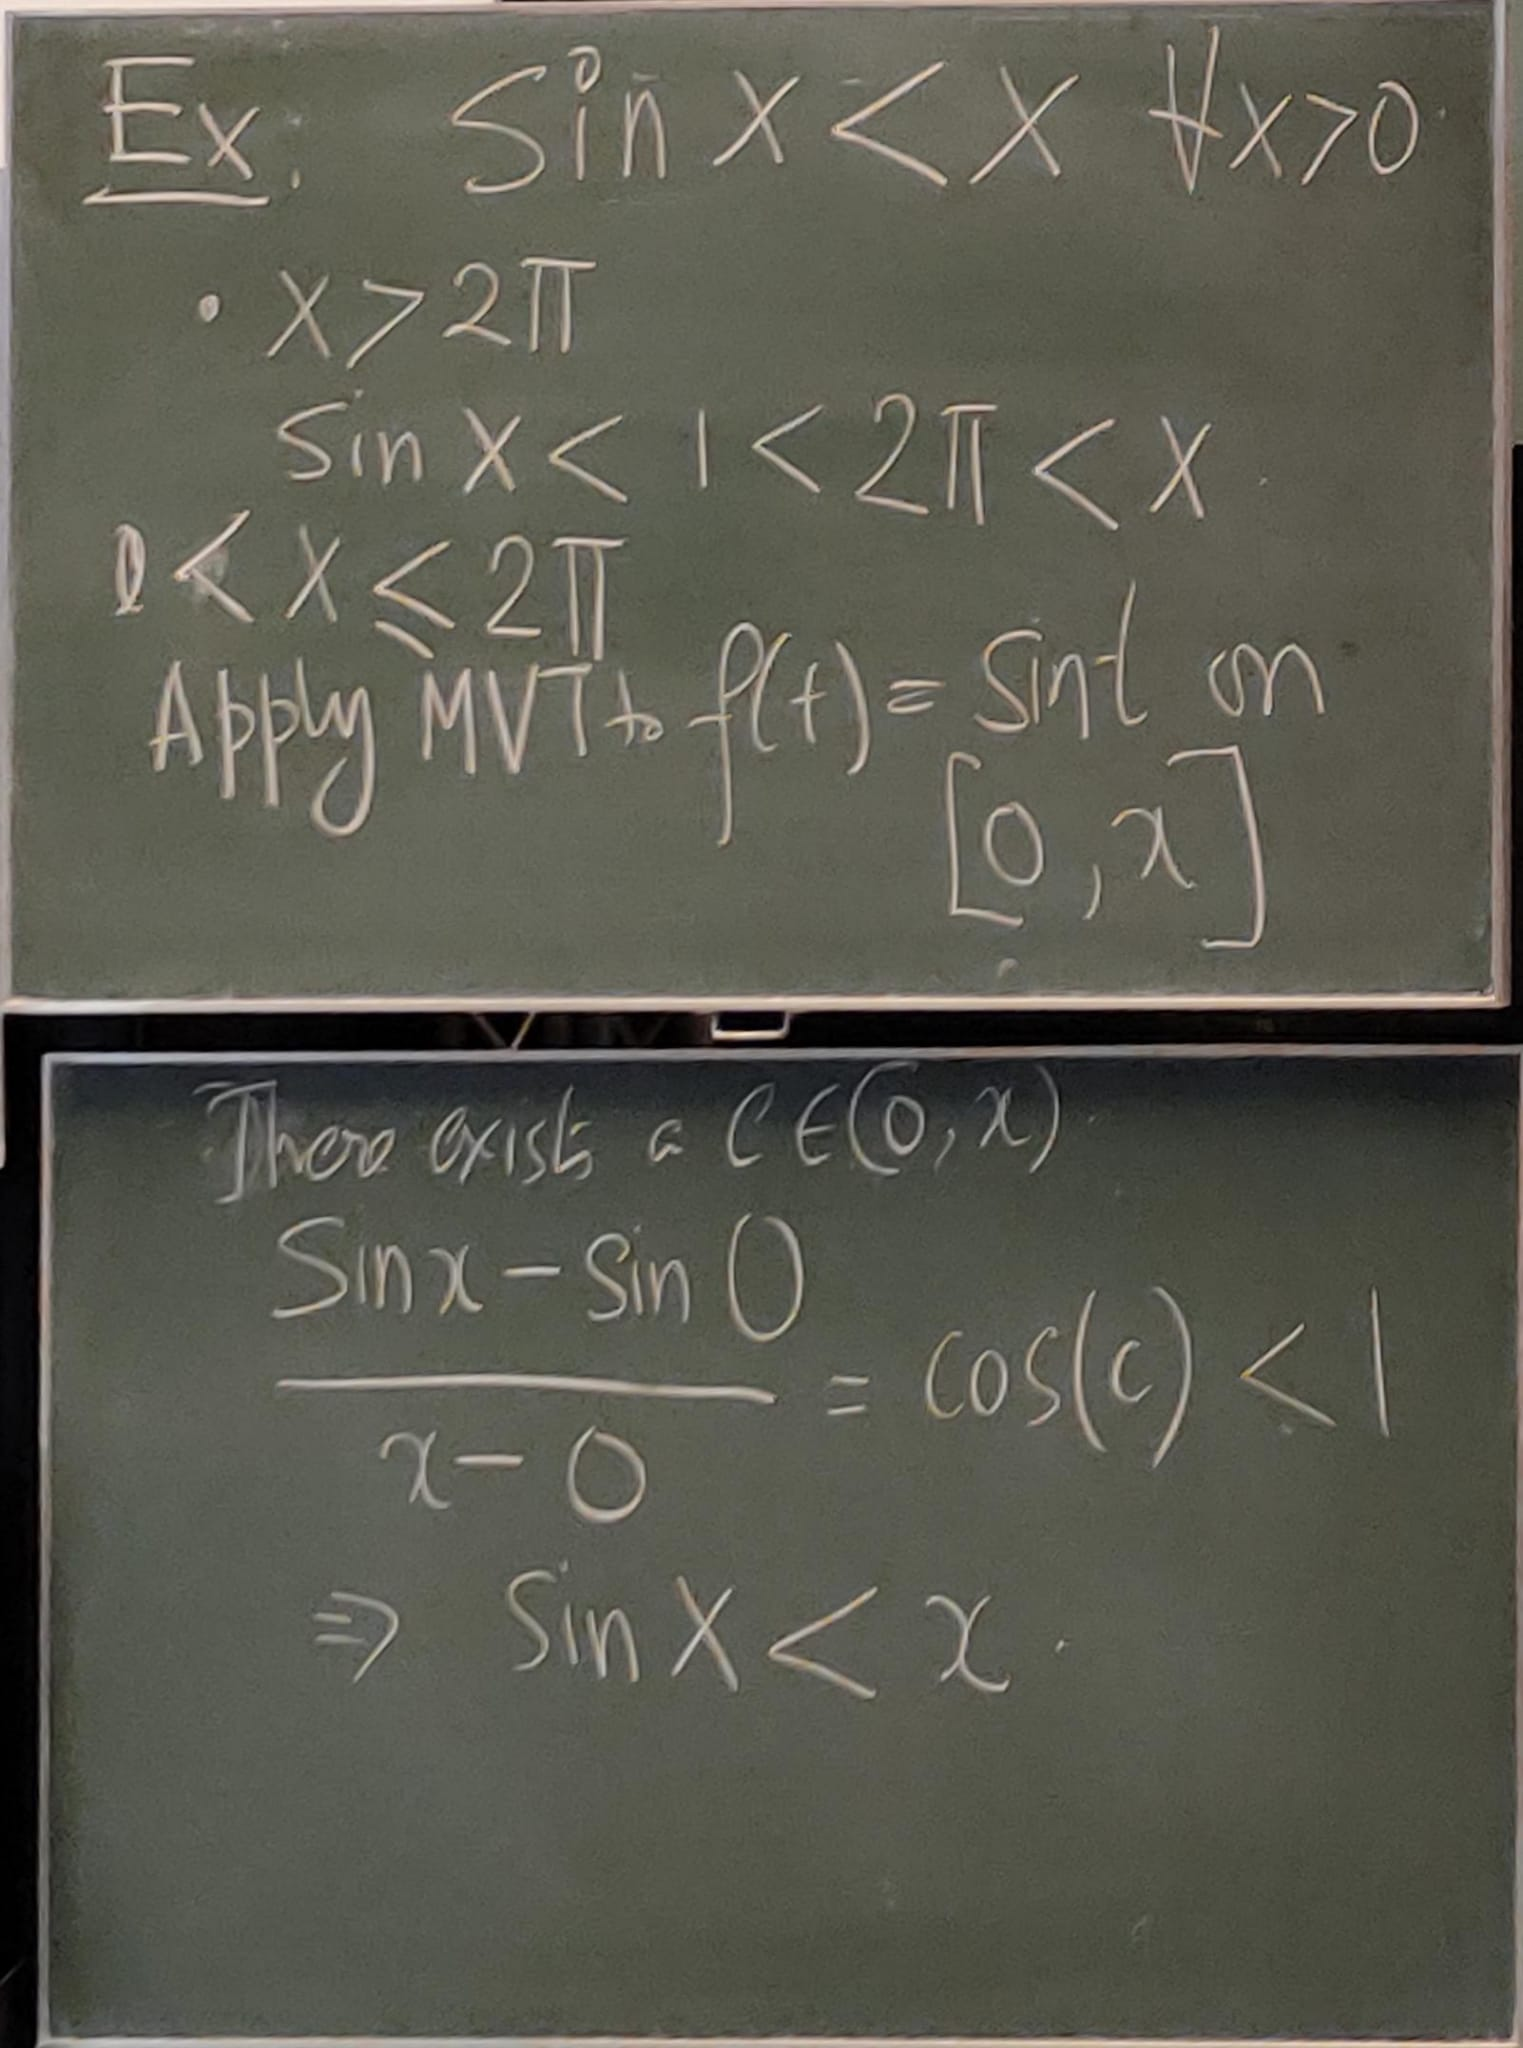 Ex. Sin x < x ∀x>0.
• x > 2π
Sin x < 1 < 2π < x.
0 < x ≤ 2π
Apply MVT to f(t) = Sint on
[0, x]
There exists a C ∈ (0, x).
Sin x - Sin 0
x - 0
= Cos(c) < 1
⇒ Sin x < x.